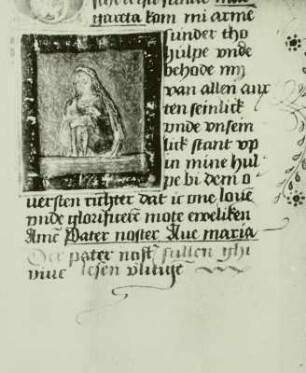 gareta kom mi arme
sunder tho
hulpe vnde
behode my
van allen anx
ten seinlick
vnde vnsein
lick stant vp
in mine hul
pe bi dem o
uersten richter dat ic one loue
vnde glorificere mote eweliken
Amē Pater noster Aue maria
pater nost sullen ghi
lesen